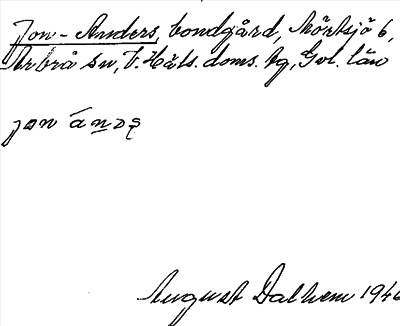 Jon-Anders, bondgård, Mörtsjö 6,
Arbrå sn, V. Häls. doms. tg, Gvl. län
jon ánds
August Dalhem 194